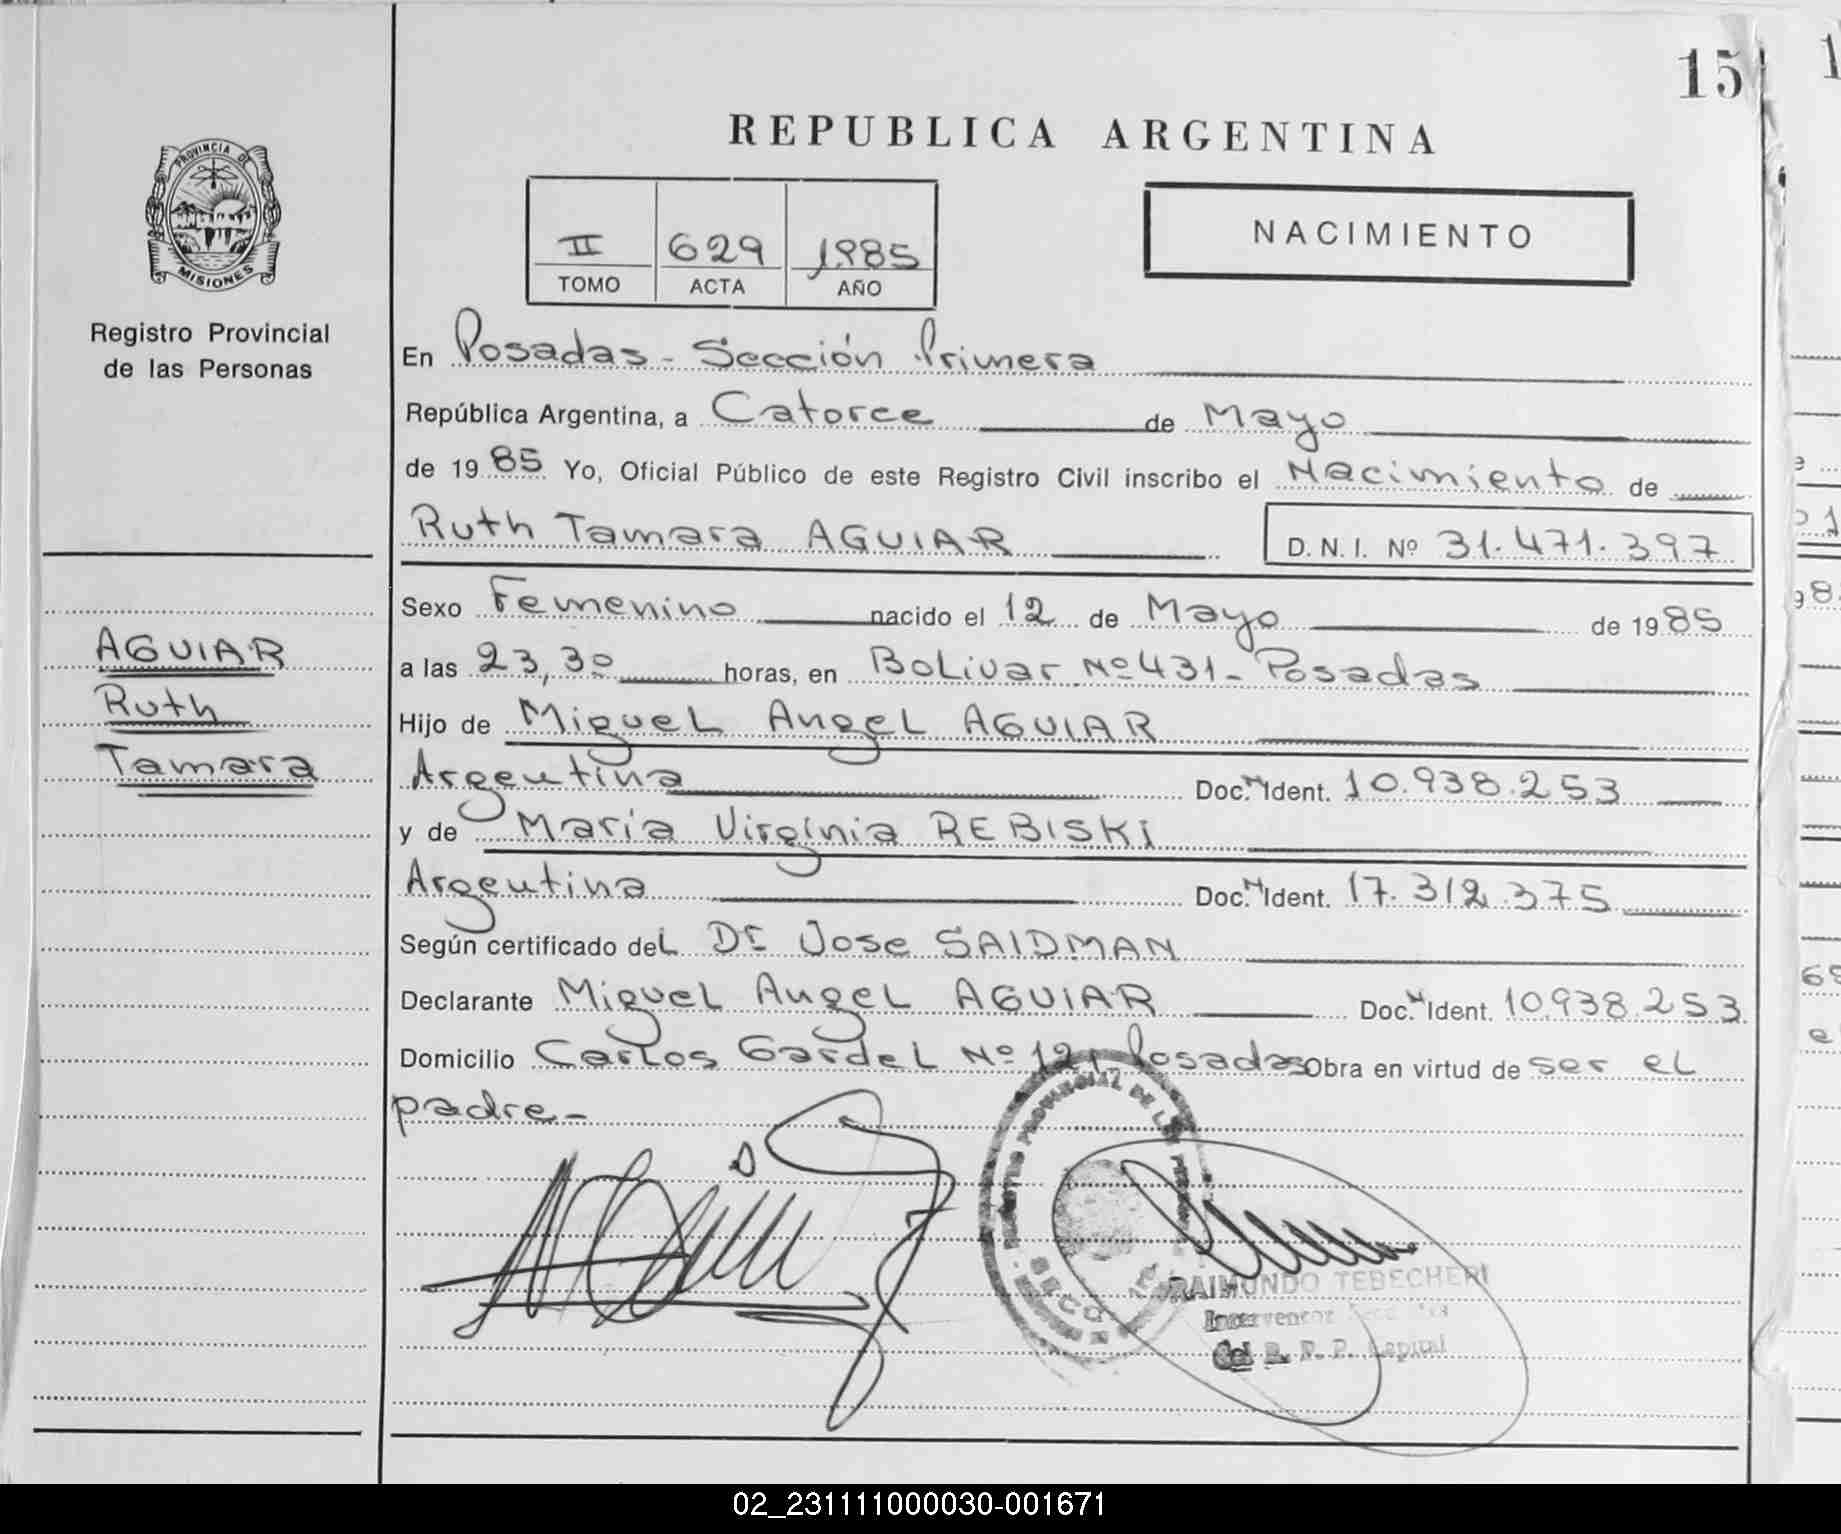 15
REPUBLICA ARGENTINA
PROVINCIA DE
MISIONES
Registro Provincial
de las Personas
II 629 1985
TOMO ACTA AÑO
NACIMIENTO
En Posadas - Sección Primera
República Argentina, a Catorce de Mayo
de 1985 Yo, Oficial Público de este Registro Civil inscribo el Nacimiento de
Ruth Tamara AGUIAR D.N.I. Nº 31.471.397
Sexo Femenino nacido el 12 de Mayo de 1985
AGUIAR
Ruth
Tamara
a las 23,30 horas, en Bolivar Nº 431 - Posadas
Hijo de Miguel Angel AGUIAR
Argentina Doc. N Ident. 10.938.253
y de María Virginia REBISKI
Argentina Doc. N Ident. 17.312.375
Según certificado del Dr Jose SAIDMAN
Declarante Miguel Angel AGUIAR Doc. N Ident. 10.938.253
Domicilio Carlos Gardel Nº 121 Posadas Obra en virtud de ser el
padre -
REGISTRO PROVINCIAL DE LAS
RAIMUNDO TEBECHERI
Interventor
del R. P. P. Capital
02_231111000030-001671